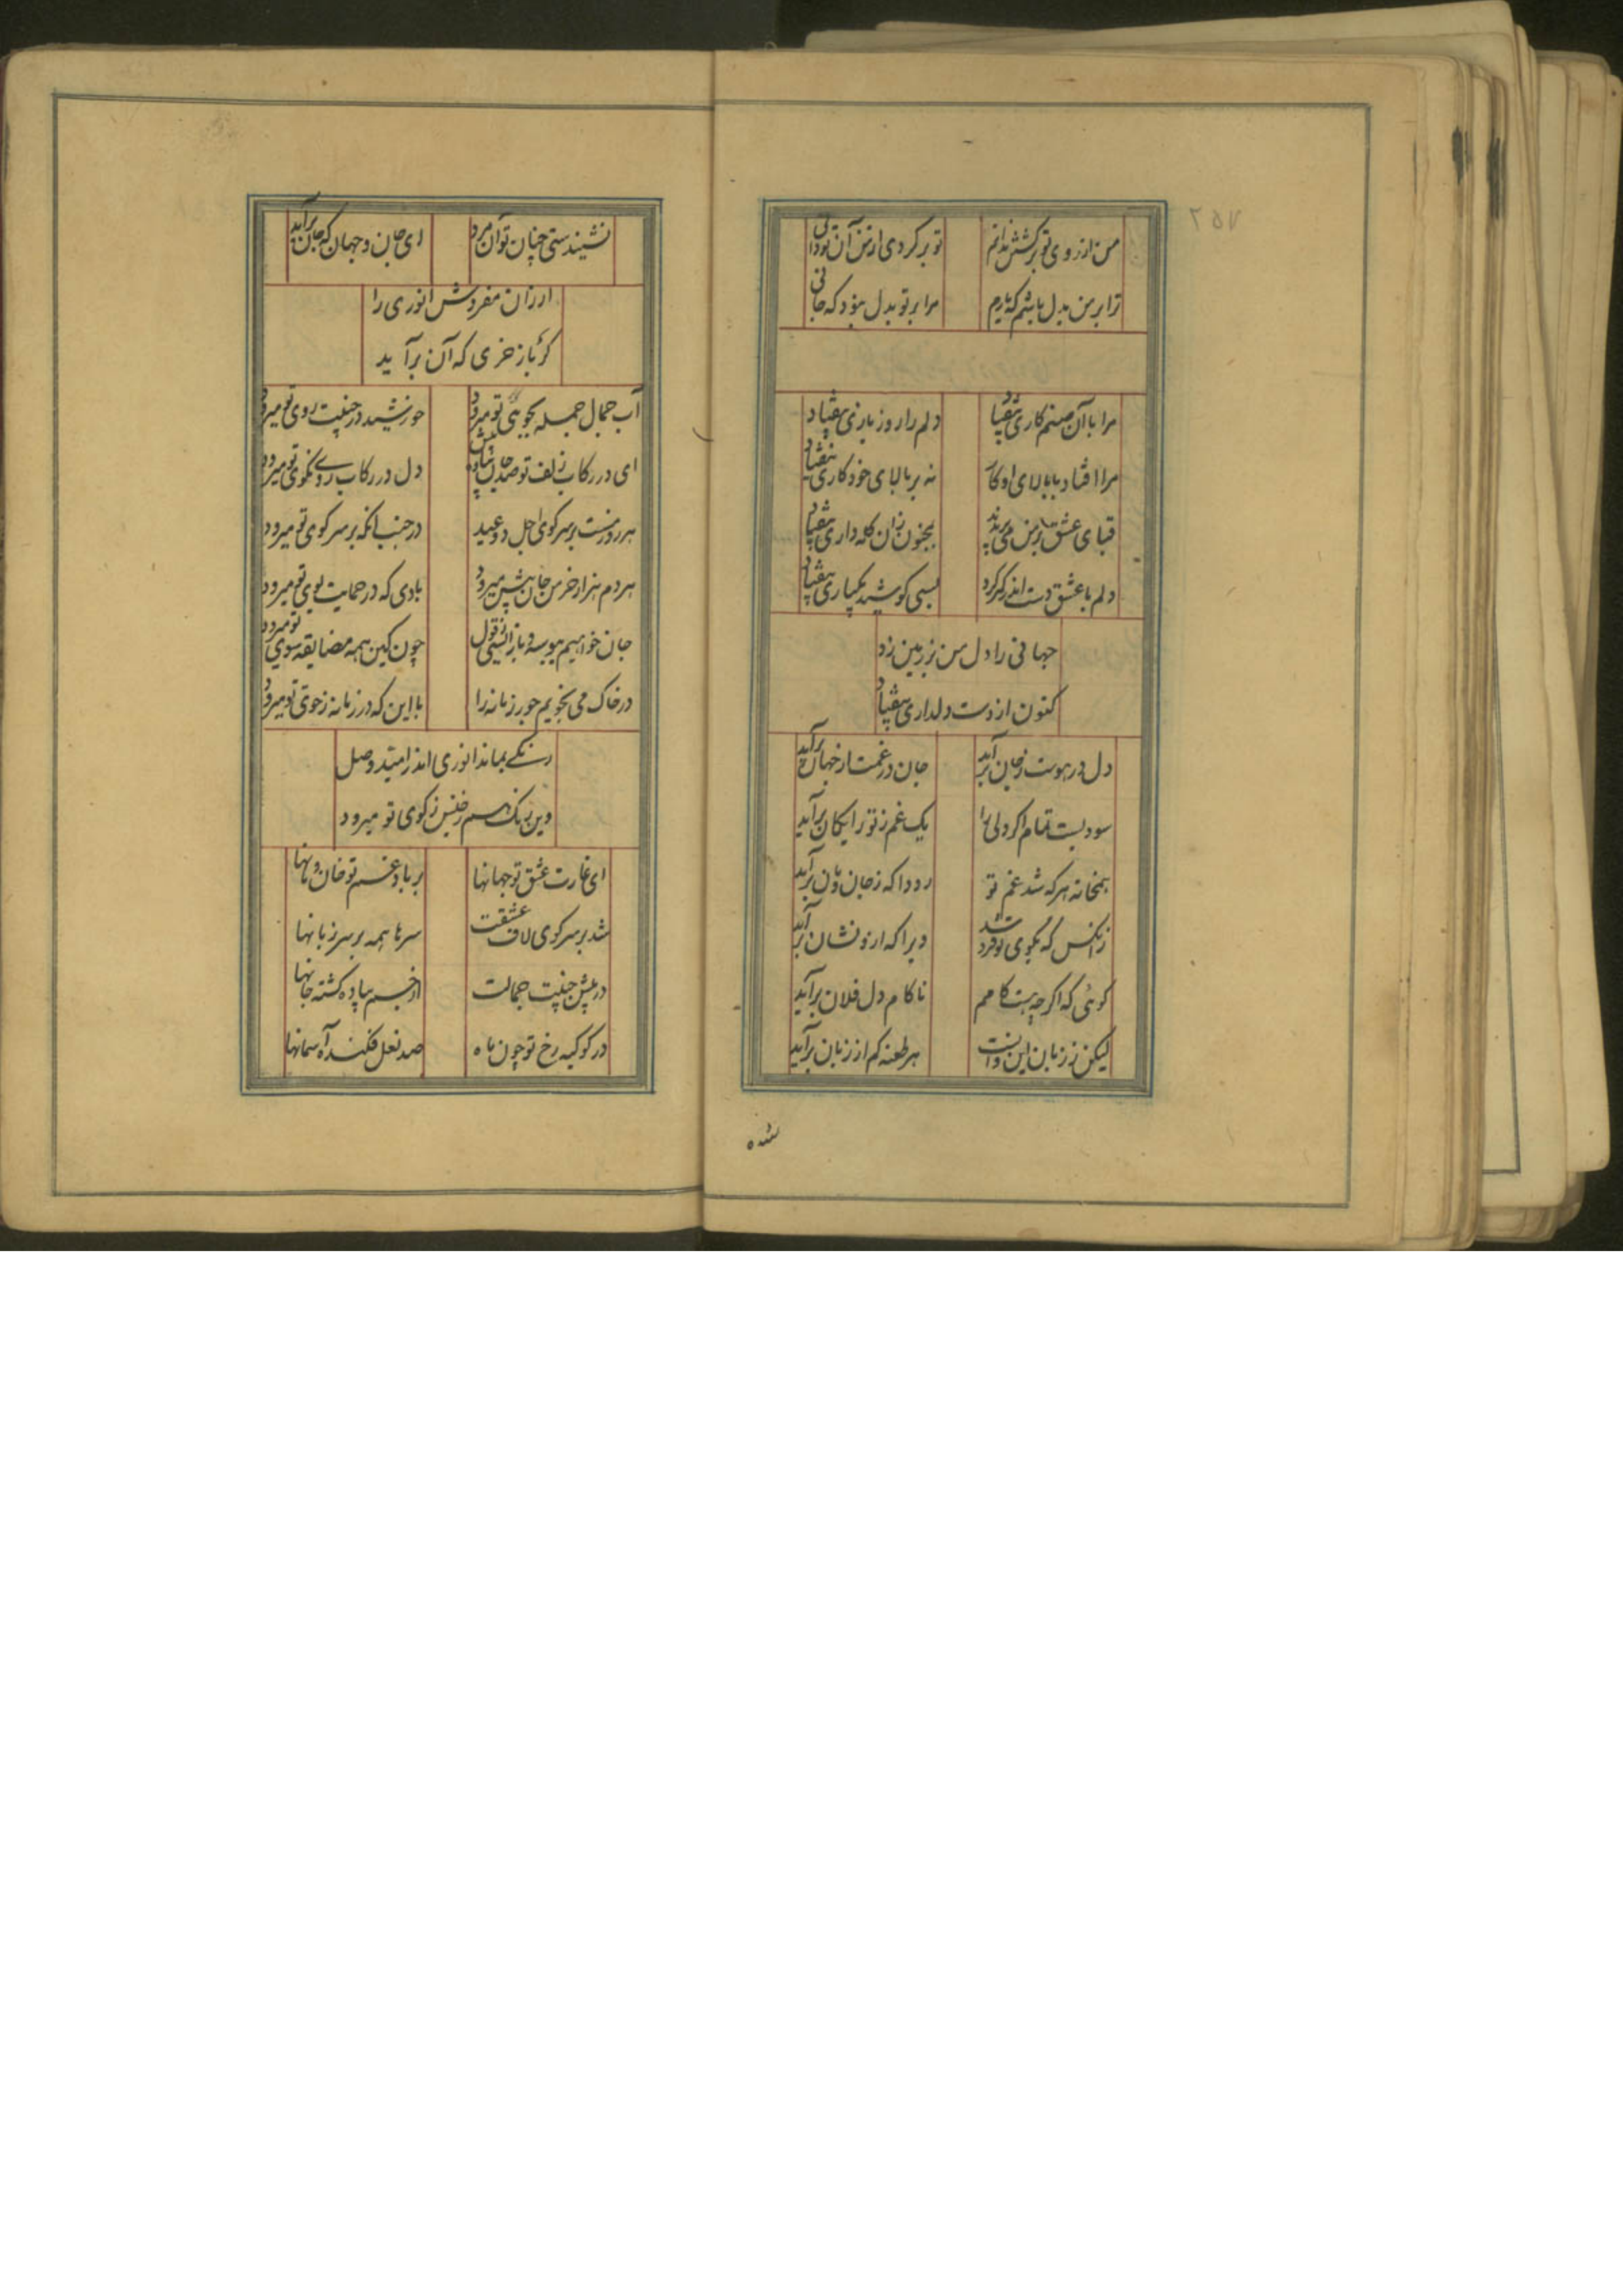 ۲۵۷
من از روی تو برگشتن ندانم تو برگردی ازین آن تو دانی
ترا بر من بدل باشد که یارم مرا بر تو بدل نبود که جانی
مرا با آن صنم کاری بیفتاد دلم را روز بازاری بیفتاد
مرا افتاد با بالای او کار نه بر بالای خود کاری بیفتاد
قبای عشق بر من می برند
دلم با عشق دست اندر کمر کرد بسی کوشید یکباری بیفتاد
جهانی را دل من بر زمین زد
کنون از دست دلداری بیفتاد
دل در هوست ز جان برآید جان در غمت از جهان برآید
سودیست تمام اگر دلی را یک غم ز تو رایگان برآید
همخانه هر که شد غم تو زودا که ز جان و مان برآید
زانکس که بکوی تو فرو شد دیرا که ازو نشان برآید
گوئی که اگر چه هست کامم ناکام دل فلان برآید
لیکن ز زبان این و آنست هر طعنه کم از زبان برآید
شده
نشنیدستی چنان توان مرد ای جان و جهان که جان برآید
ارزان مفروش انوری را
گر باز خری که آن برآید
آب جمال جمله بجوی تو میرود خورشید در جنیبت روی تو میرود
ای در رکاب زلف تو صد جان پیاده بیش دل در رکاب روی نکوی تو میرود
هر روز هست بر سر کوی اجل دو عید در جنب آنکه بر سر کوی تو میرود
هر دم هزار خرمن جان بیش میرود بادی که در حمایت بوی تو میرود
جان خواهیم ببوسه و باز ایستی ز قول چون کین همه مضایقه سوی تو میرود
در خاک می بجویم جور زمانه را با این که در زمانه ز خوی تو میرود
رنگی بماند انوری اندر امید وصل
وین رنگ هم ز جنس رکوی تو میرود
ای غارت عشق تو جهانها بر باد غم تو خان و مانها
شد بر سر کوی لاف عشقت سرها همه بر سر زبانها
در پیش جنیبت جمالت از جسم پیاده گشته جانها
در کوکبه رخ تو چون ماه صد نعل فکنده آسمانها